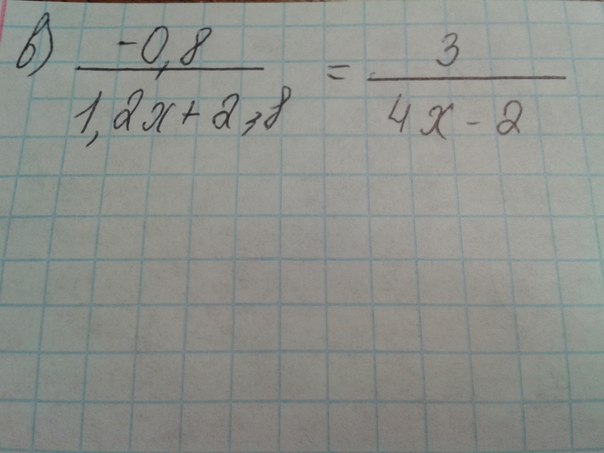 в) -0,8 / 1,2x+2,8 = 3 / 4x-2